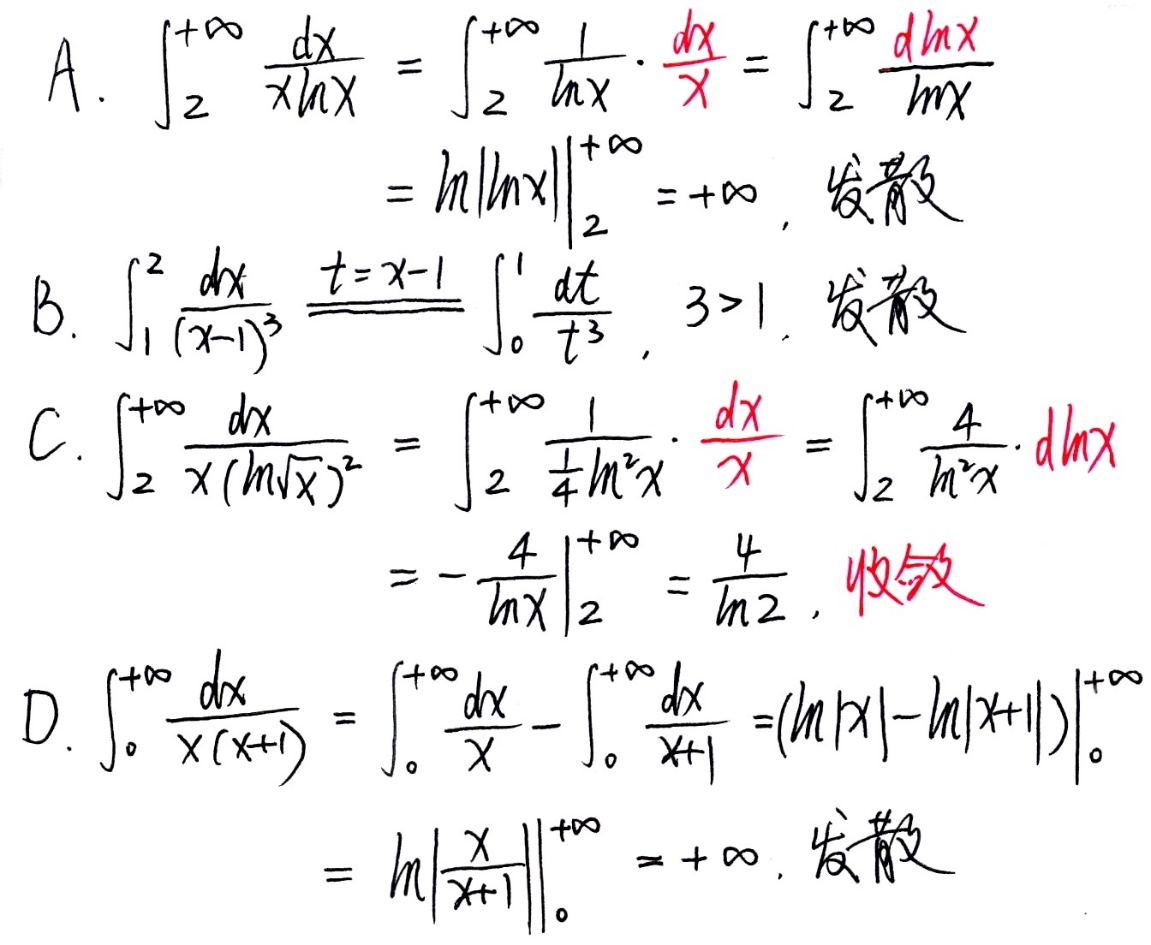 A. ∫₂^{+∞} dx/(x ln x) = ∫₂^{+∞} 1/(ln x) · dx/x = ∫₂^{+∞} d ln x/(ln x)
= ln|ln x| |₂^{+∞} = +∞, 发散
B. ∫₁² dx/(x-1)³ \overset{t=x-1}{=} ∫₀¹ dt/t³, 3>1. 发散
C. ∫₂^{+∞} dx/(x(ln√x)²) = ∫₂^{+∞} 1/(¼ ln²x) · dx/x = ∫₂^{+∞} 4/(ln²x) · d ln x
= -4/(ln x) |₂^{+∞} = 4/(ln 2), 收敛
D. ∫₀^{+∞} dx/(x(x+1)) = ∫₀^{+∞} dx/x - ∫₀^{+∞} dx/(x+1) = (ln|x| - ln|x+1|) |₀^{+∞}
= ln|x/(x+1)| |₀^{+∞} = +∞, 发散